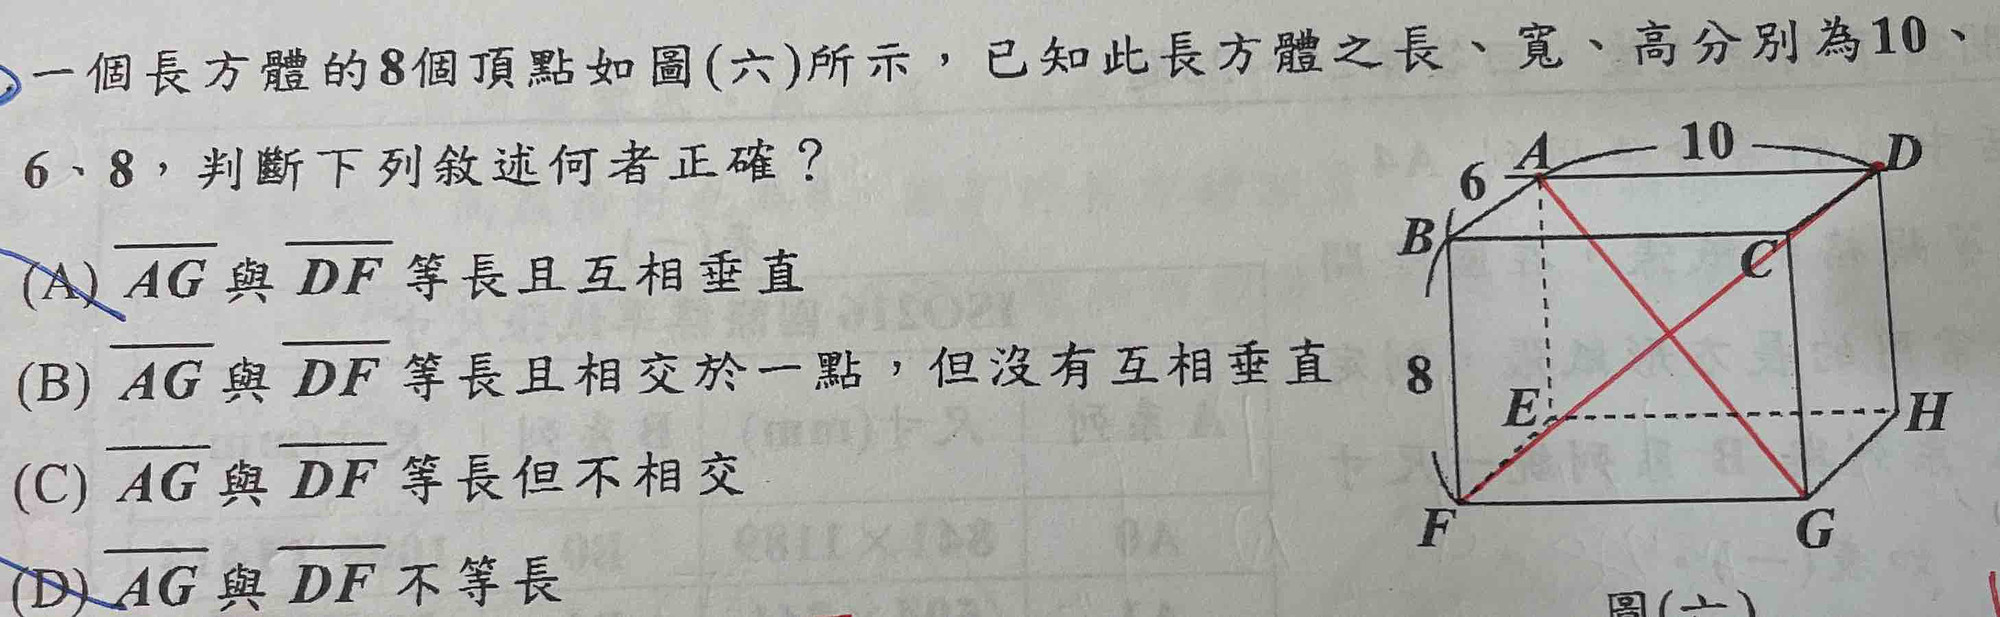 一個長方體的8個頂點如圖(六)所示，已知此長方體之長、寬、高分別為10、
6、8，判斷下列敘述何者正確？
(A) AG 與 DF 等長且互相垂直
(B) AG 與 DF 等長且相交於一點，但沒有互相垂直
(C) AG 與 DF 等長但不相交
(D) AG 與 DF 不等長
A 10 D
6
B
C
8
E H
F G
圖(六)